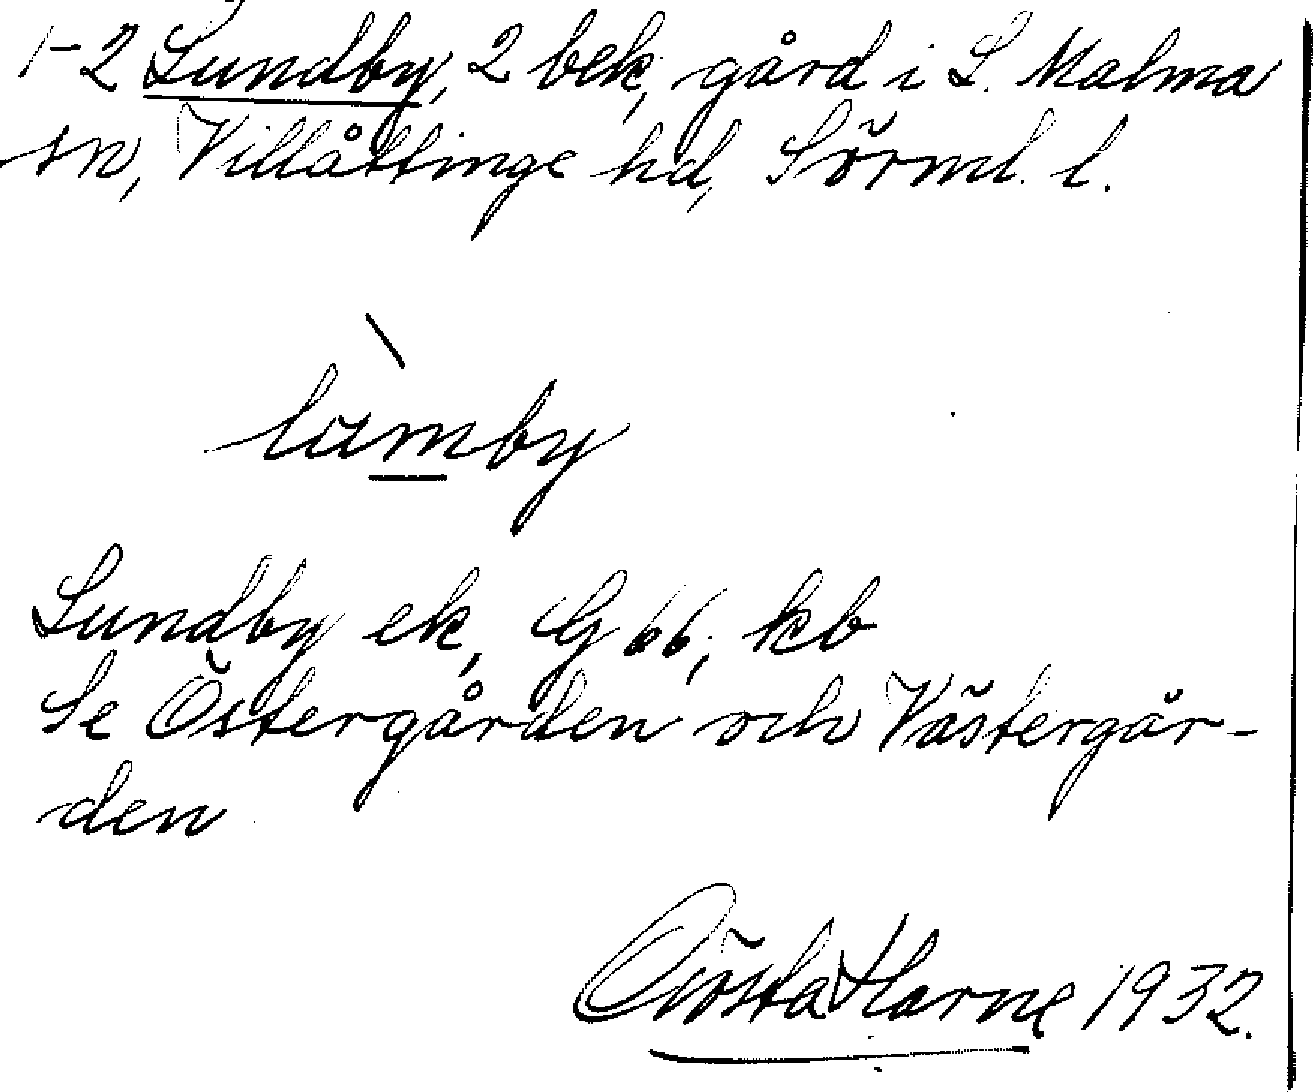 1-2 Lundby, 2 bek, gård i L. Malma
sn, Villåttinge hd, Sörml. l.
lùmby
Lundby ek, G 66, kb
Se Östergården och Västergår-
den
Gösta Harne 1932.